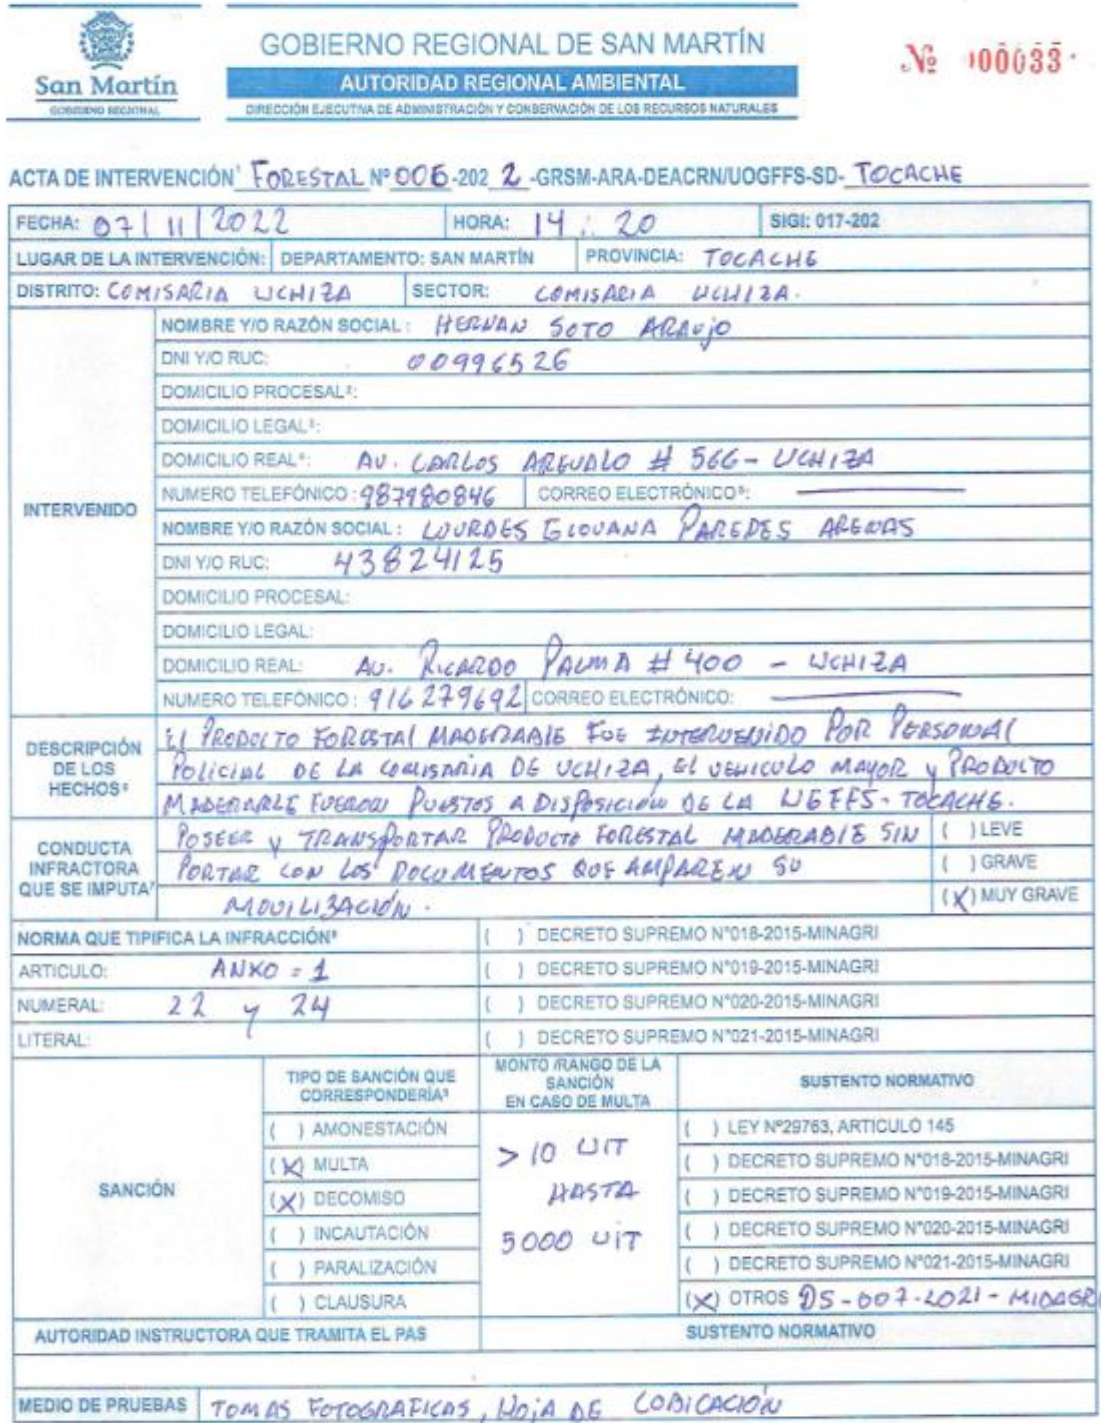 San Martín
GOBIERNO REGIONAL
GOBIERNO REGIONAL DE SAN MARTÍN
AUTORIDAD REGIONAL AMBIENTAL
DIRECCIÓN EJECUTIVA DE ADMINISTRACIÓN Y CONSERVACIÓN DE LOS RECURSOS NATURALES
Nº 000033
ACTA DE INTERVENCIÓN¹ FORESTAL Nº 006-202 2 -GRSM-ARA-DEACRN/UOGFFS-SD- TOCACHE
FECHA: 07/11/2022 HORA: 14:20 SIGI: 017-202
LUGAR DE LA INTERVENCIÓN: DEPARTAMENTO: SAN MARTÍN PROVINCIA: TOCACHE
DISTRITO: COMISARIA UCHIZA SECTOR: COMISARIA UCHIZA.
INTERVENIDO
NOMBRE Y/O RAZÓN SOCIAL: HERNAN SOTO ARAUJO
DNI Y/O RUC: 00996526
DOMICILIO PROCESAL²:
DOMICILIO LEGAL³:
DOMICILIO REAL⁴: AV. CARLOS AREVALO # 566 - UCHIZA
NUMERO TELEFÓNICO: 987980846 CORREO ELECTRÓNICO⁵:
NOMBRE Y/O RAZÓN SOCIAL: LOURDES GIOVANA PAREDES ARENAS
DNI Y/O RUC: 43824125
DOMICILIO PROCESAL:
DOMICILIO LEGAL:
DOMICILIO REAL: AV. RICARDO PALMA # 400 - UCHIZA
NUMERO TELEFÓNICO: 916279692 CORREO ELECTRÓNICO:
DESCRIPCIÓN DE LOS HECHOS⁶
El PRODUCTO FORESTAL MADERABLE FUE INTERVENIDO POR PERSONAL
POLICIAL DE LA COMISARIA DE UCHIZA, El VEHICULO MAYOR y PRODUCTO
MADERABLE FUERON PUESTOS A DISPOSICION DE LA UGFFS-TOCACHE.
CONDUCTA INFRACTORA QUE SE IMPUTA⁷
POSEER y TRANSPORTAR PRODUCTO FORESTAL MADERABLE SIN
PORTAR CON LOS DOCUMENTOS QUE AMPAREN SU
MOVILIZACIÓN.
( ) LEVE
( ) GRAVE
(X) MUY GRAVE
NORMA QUE TIPIFICA LA INFRACCIÓN⁸ ( ) DECRETO SUPREMO N°018-2015-MINAGRI
ARTICULO: ANXO = 1 ( ) DECRETO SUPREMO N°019-2015-MINAGRI
NUMERAL: 22 y 24 ( ) DECRETO SUPREMO N°020-2015-MINAGRI
LITERAL: ( ) DECRETO SUPREMO N°021-2015-MINAGRI
SANCIÓN
TIPO DE SANCIÓN QUE CORRESPONDERÍA⁹
( ) AMONESTACIÓN
(X) MULTA
(X) DECOMISO
( ) INCAUTACIÓN
( ) PARALIZACIÓN
( ) CLAUSURA
MONTO /RANGO DE LA SANCIÓN EN CASO DE MULTA
> 10 UIT
HASTA
5000 UIT
SUSTENTO NORMATIVO
( ) LEY Nº29763, ARTICULO 145
( ) DECRETO SUPREMO N°018-2015-MINAGRI
( ) DECRETO SUPREMO N°019-2015-MINAGRI
( ) DECRETO SUPREMO N°020-2015-MINAGRI
( ) DECRETO SUPREMO N°021-2015-MINAGRI
(X) OTROS DS-007-2021-MIDAGRI
AUTORIDAD INSTRUCTORA QUE TRAMITA EL PAS SUSTENTO NORMATIVO
MEDIO DE PRUEBAS TOMAS FOTOGRAFICAS, HOJA DE CUBICACIÓN